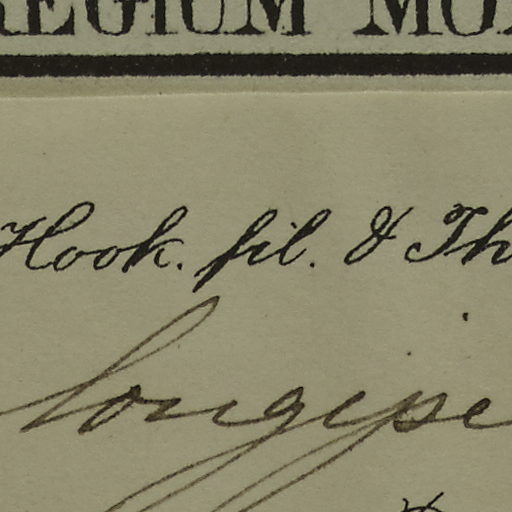 REGIUM MO
Hook. fil. & Th
longipe